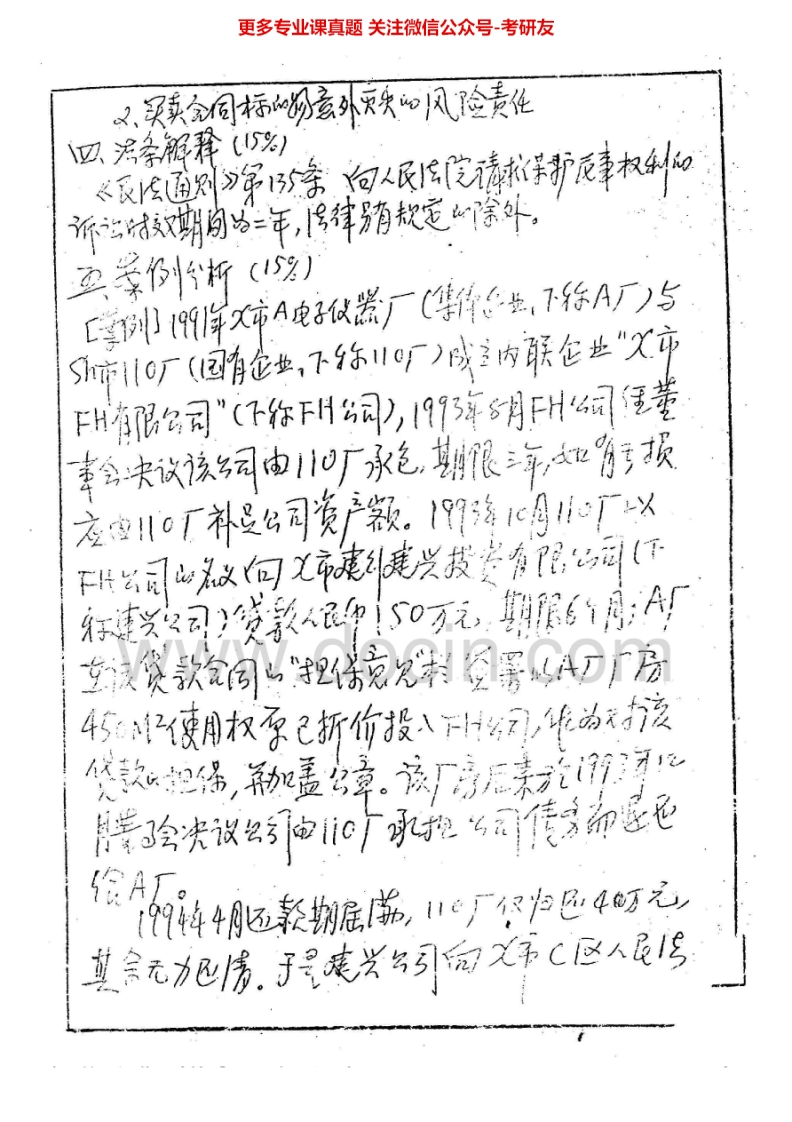 更多专业课真题 关注微信公众号-考研友
2、买卖合同标的物意外灭失的风险责任
四、法条解释(15%)
《民法通则》第135条 向人民法院请求保护民事权利的
诉讼时效期间为二年,法律另有规定的除外。
五、案例分析(15%)
[案例]1991年X市A电子仪器厂(集体企业,下称A厂)与
Sh市110厂(国有企业,下称110厂)成立内联企业"X市
FH有限公司"(下称FH公司),1993年8月FH公司经董
事会决议该公司由110厂承包,期限三年,如有亏损
应由110厂补足公司资产额。1993年10月110厂以
FH公司的名义向X市建行建兴投资有限公司(下
称建兴公司)贷款人民币150万元,期限6个月;A厂
在该贷款合同的"担保意见"栏签署以A厂厂房
450M²使用权原已折价投入FH公司,作为对该
贷款的担保,并加盖公章。该厂房后来于1993年12
月董事会决议公司由110厂承担公司债务而退还
给A厂。
1994年4月还款期届满,110厂仅归还40万元,
其余无力还清。于是建兴公司向X市C区人民法
www.docin.com